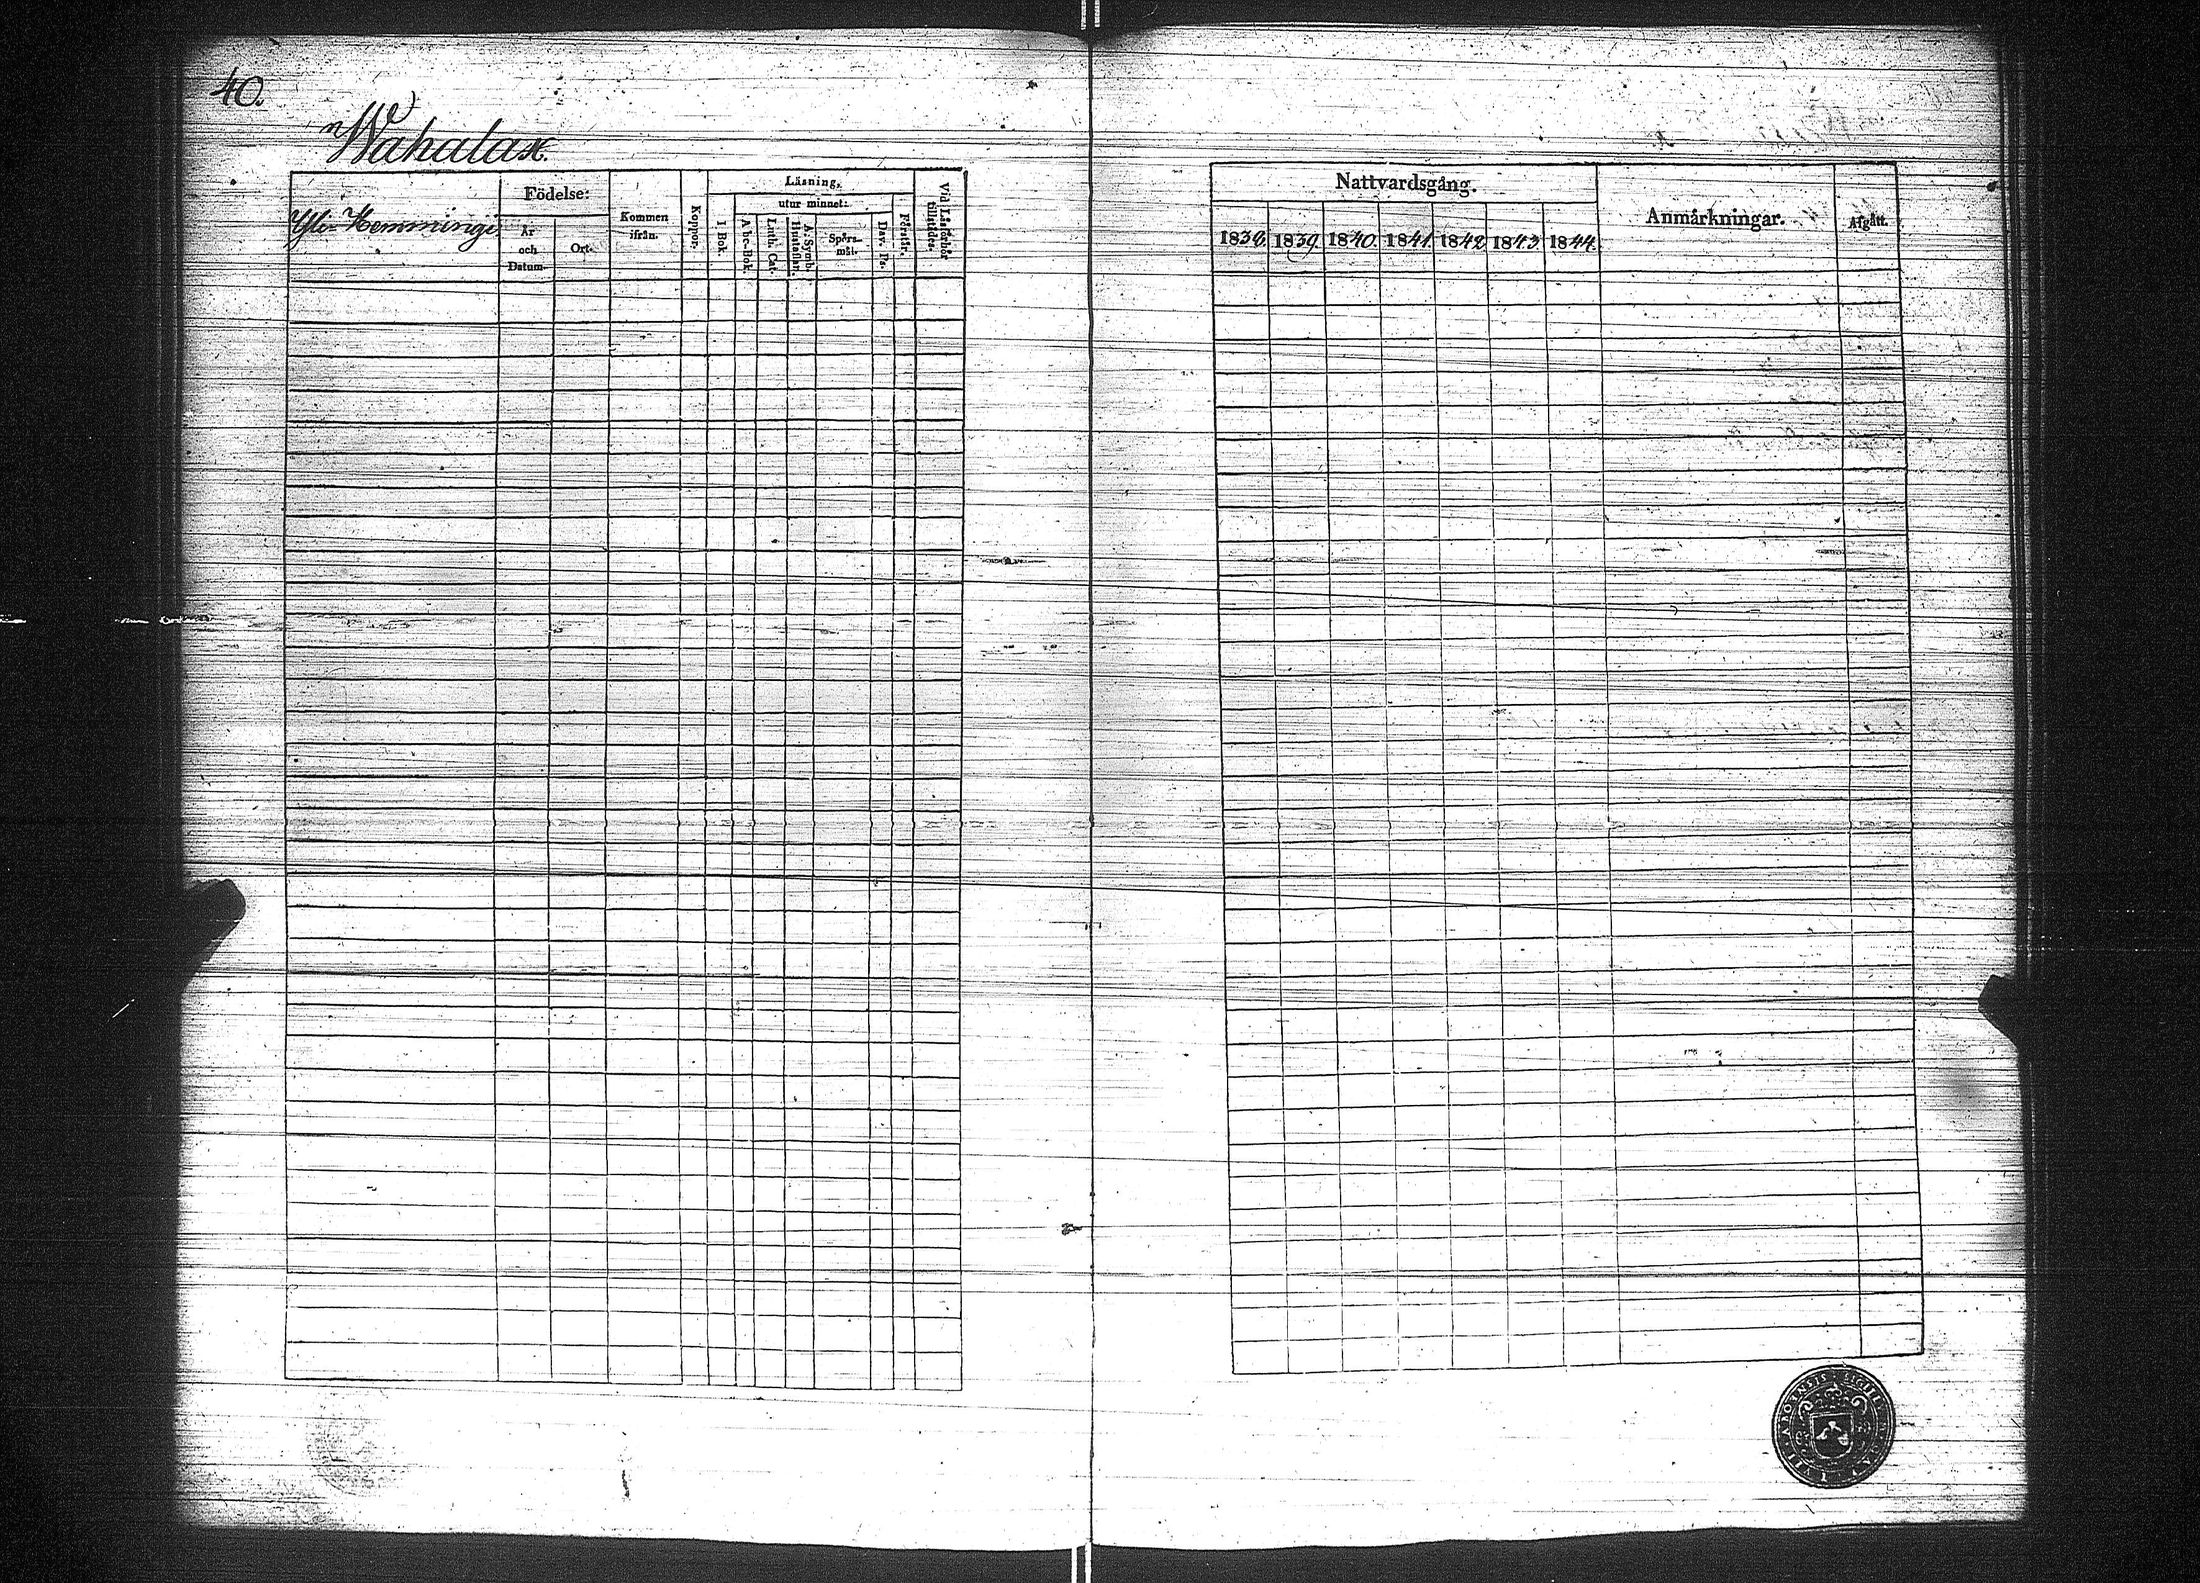 40.
Wahalax.
Yli-Hemmingi
Födelse:
År och Datum.
Ort.
Kommen ifrån.
Koppor.
Läsning,
utur minnet:
I Bok.
Abc-Bok.
Luth. Cat.
A: Symb. Hustaflan.
Spörsmål.
Dav. Ps.
Förstår.
Vid Läseförhör tillstädes.
Nattvardsgång.
1838.
1839
1840.
1841.
1842
1843
1844.
Anmärkningar.
Afgått.